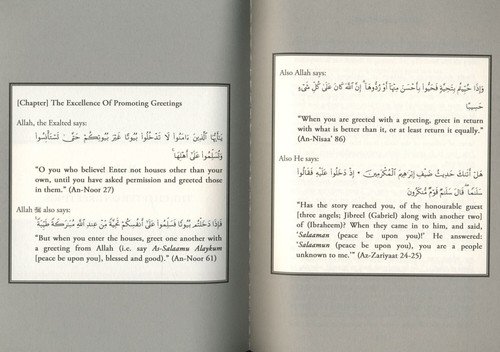 [Chapter] The Excellence Of Promoting Greetings
Allah, the Exalted says:
يَٰٓأَيُّهَا ٱلَّذِينَ ءَامَنُوا۟ لَا تَدْخُلُوا۟ بُيُوتًا غَيْرَ بُيُوتِكُمْ حَتَّىٰ تَسْتَأْنِسُوا۟
وَتُسَلِّمُوا۟ عَلَىٰٓ أَهْلِهَا ۚ
"O you who believe! Enter not houses other than your
own, until you have asked permission and greeted those
in them." (An-Noor 27)
Allah ﷻ also says:
فَإِذَا دَخَلْتُم بُيُوتًا فَسَلِّمُوا۟ عَلَىٰٓ أَنفُسِكُمْ تَحِيَّةً مِّنْ عِندِ ٱللَّهِ مُبَٰرَكَةً طَيِّبَةً ۚ
"But when you enter the houses, greet one another with
a greeting from Allah (i.e. say As-Salaamu Alaykum
[peace be upon you], blessed and good)." (An-Noor 61)
Also Allah says:
وَإِذَا حُيِّيتُم بِتَحِيَّةٍ فَحَيُّوا۟ بِأَحْسَنَ مِنْهَآ أَوْ رُدُّوهَآ ۗ إِنَّ ٱللَّهَ كَانَ عَلَىٰ كُلِّ شَىْءٍ
حَسِيبًا
"When you are greeted with a greeting, greet in return
with what is better than it, or at least return it equally."
(An-Nisaa' 86)
Also He says:
هَلْ أَتَىٰكَ حَدِيثُ ضَيْفِ إِبْرَٰهِيمَ ٱلْمُكْرَمِينَ ۝ إِذْ دَخَلُوا۟ عَلَيْهِ فَقَالُوا۟
سَلَٰمًا ۖ قَالَ سَلَٰمٌ قَوْمٌ مُّنكَرُونَ
"Has the story reached you, of the honourable guest
[three angels; Jibreel (Gabriel) along with another two]
of (Ibraheem)? When they came in to him, and said,
'Salaaman (peace be upon you)!' He answered:
'Salaamun (peace be upon you), you are a people
unknown to me.'" (Az-Zariyaat 24-25)